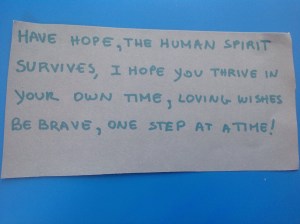 HAVE HOPE, THE HUMAN SPIRIT
SURVIVES, I HOPE YOU THRIVE IN
YOUR OWN TIME, LOVING WISHES
BE BRAVE, ONE STEP AT A TIME!